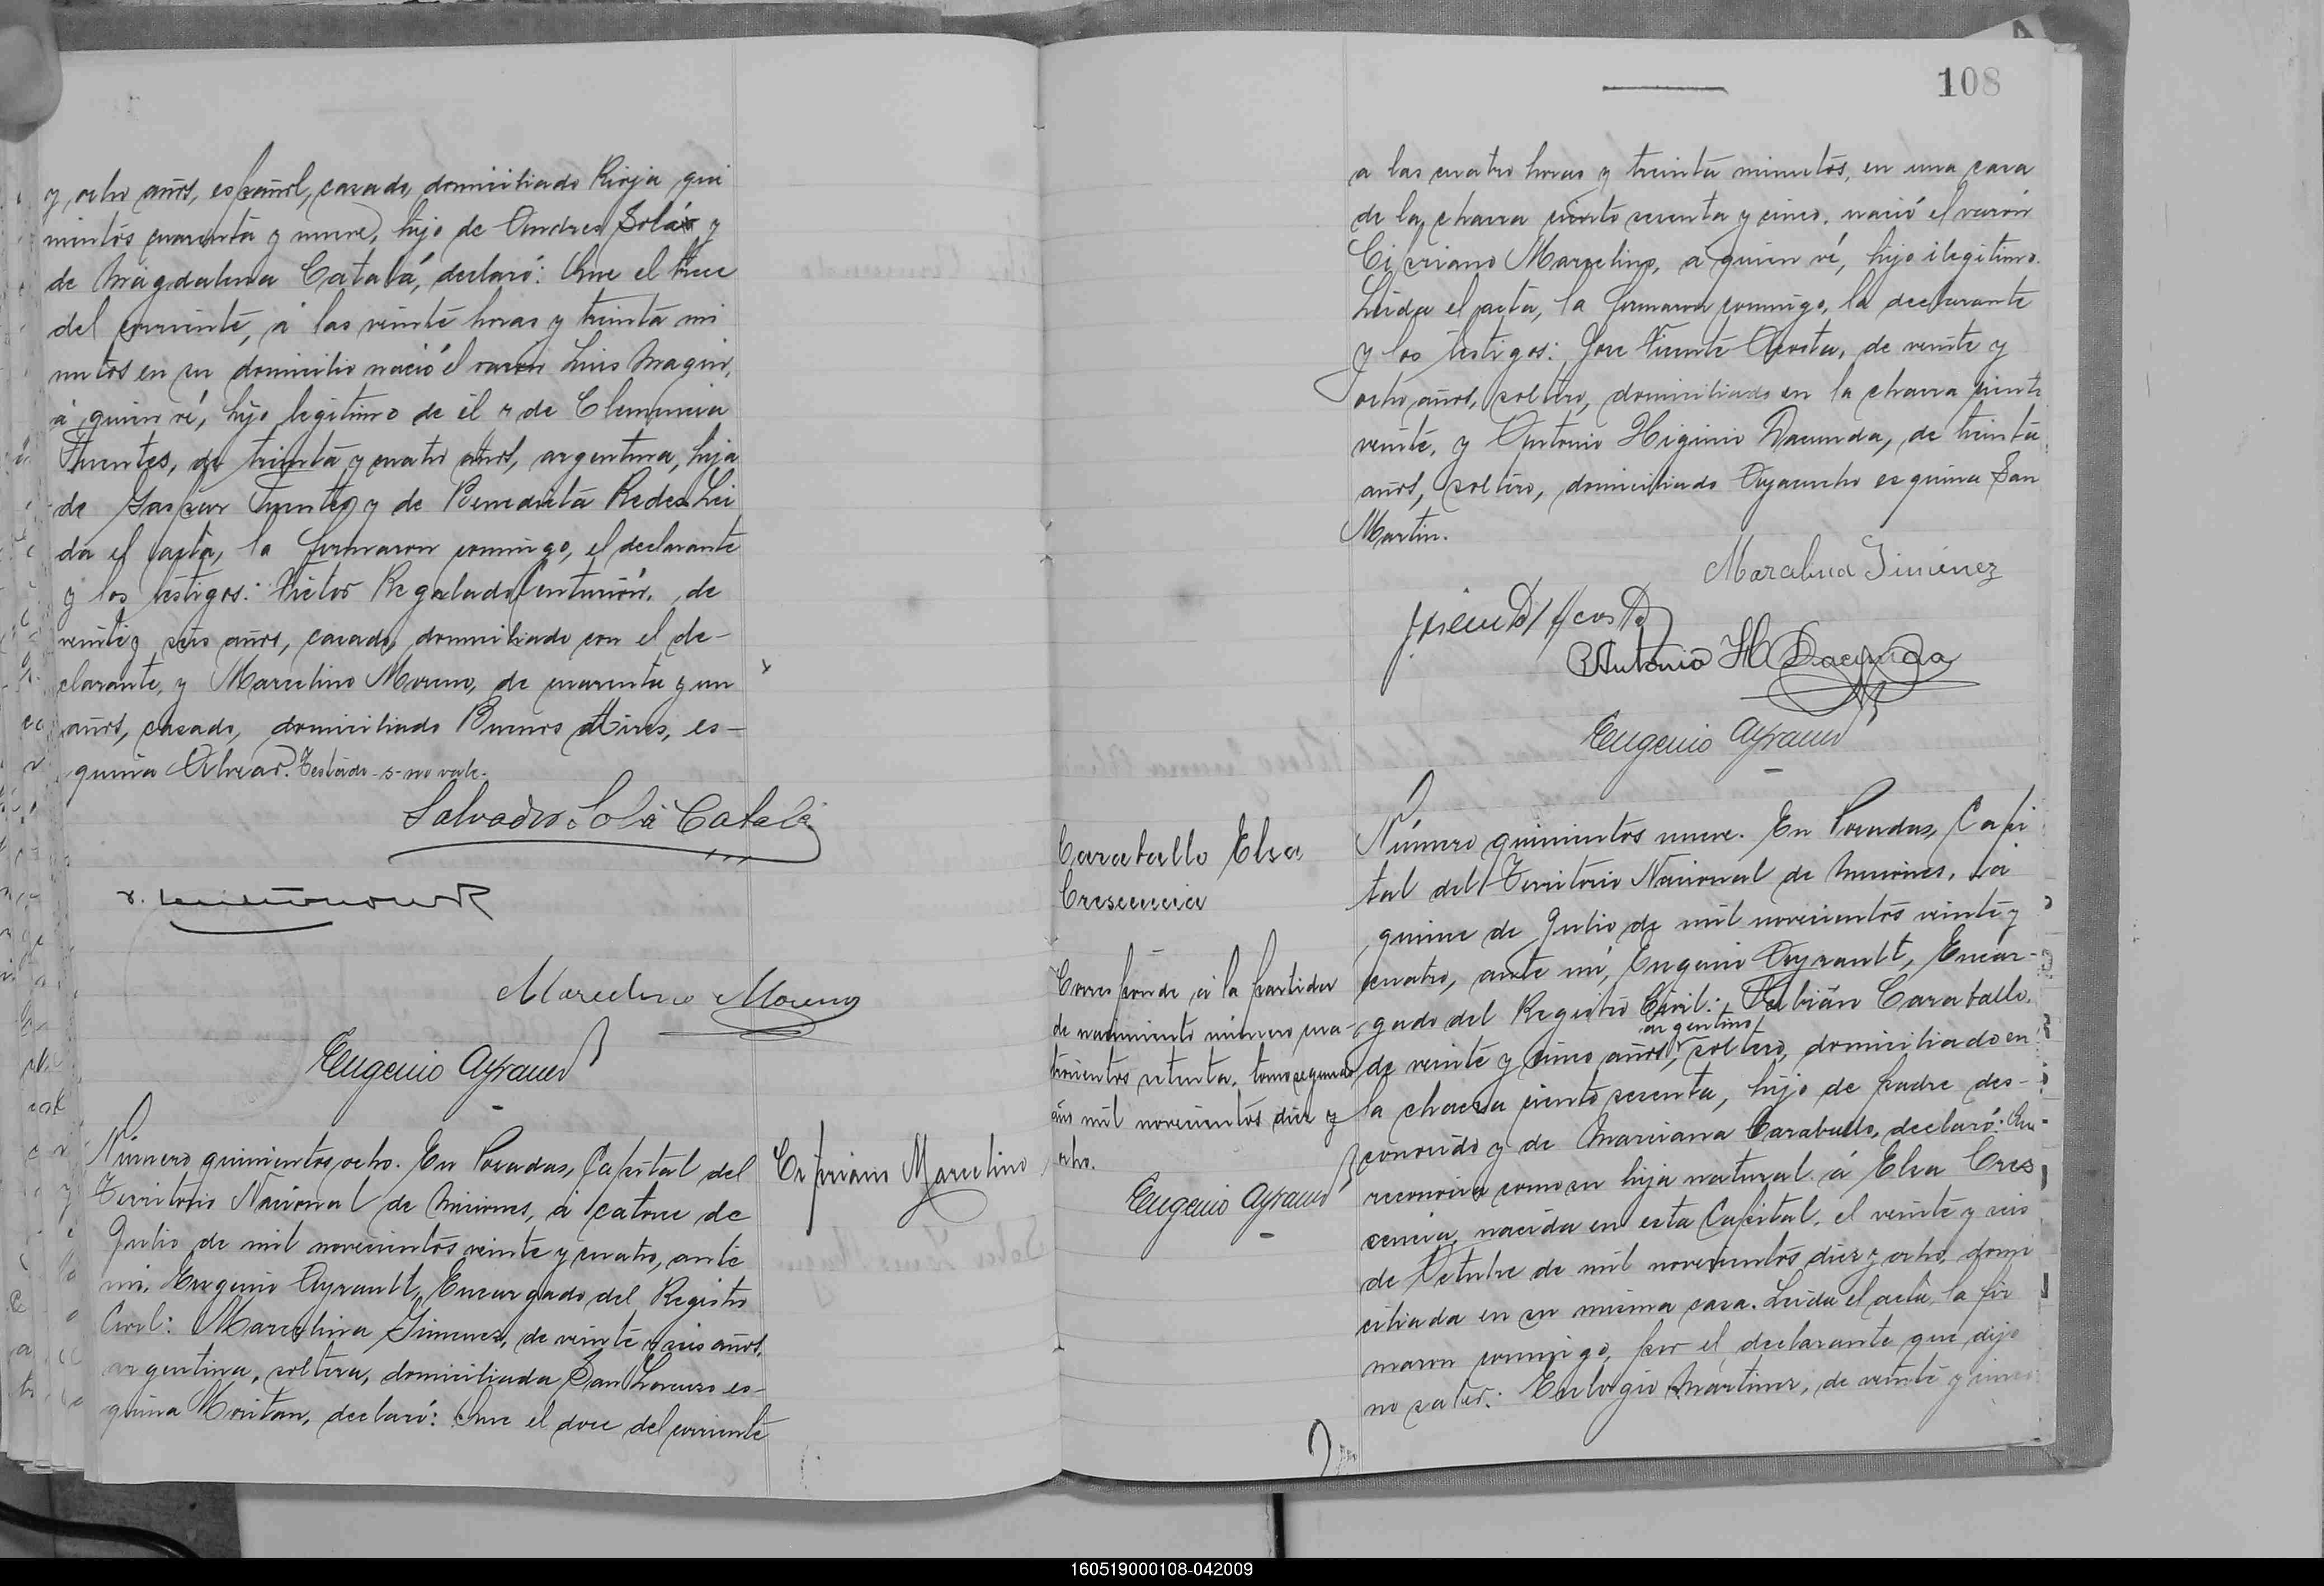 y ocho años, español, casado, domiciliado Rioja qui
nientos cuarenta y nueve, hijo de Andres Solás y
de Magdalena Catalá, declaró: Que el trece
del corriente, á las veinte horas y treinta mi
nutos en su domicilio nació el varon Luis Magin,
á quien ví, hijo legitimo de él y de Clemencia
Fuentes, de treinta y cuatro años, argentina, hija
de Gaspar Fuentes y de Benedicta Redes. Lei
da el acta, la firmaron conmigo, el declarante
y los testigos: Victor Regalado Centurión, de
veinte y seis años, casado, domiciliado con el de-
clarante, y Marcelino Moreno, de cuarenta y un
años, casado, domiciliado Buenos Aires, es-
quina Alvear. Testado-s-no vale.
Salvador Solá Catalá
Marcelino Moreno
Eugenio Ayrault
Número quinientos ocho. En Posadas, Capital del
Territorio Nacional de Misiones, á catorce de
Julio de mil novecientos veinte y cuatro, ante
mi, Eugenio Ayrault, Encargado del Registro
Civil: Marcelina Gimenez, de veinte y seis años,
argentina, soltera, domiciliada San Lorenzo es-
quina declaró: Que el doce del corriente
Cipriano Marcelino
108
a las cuatro horas y treinta minutos, en una casa
de la chacra ciento sesenta y cinco, nació el varón
Cipriano Marcelino, a quien ví, hijo ilegitimo.
Leida el acta, la firmaron conmigo, la declarante
y los testigos: Jose Vicente Acosta, de veinte y
ocho años, soltero, domiciliado en la chacra ciento
veinte, y Antonio Higinio Dacunda, de treinta
años, soltero, domiciliado Ayacucho esquina San
Martin.
Marcelina Jimenez
J Vicente Acosta
Antonio H Dacunda
Eugenio Ayrault
Caraballo Elsa
Crescencia
Corresponde á la partida
de nacimiento número cua-
trocientos setenta, tomo segundo
año mil novecientos diez y
ocho.
Eugenio Ayrault
Número quinientos nueve. En Posadas, Capi
tal del Territorio Nacional de Misiones, á
quince de Julio de mil novecientos veinte y
cuatro, ante mí, Eugenio Ayrault, Encar-
gado del Registro Civil: Fabián Caraballo,
argentino,
de veinte y cinco años, soltero, domiciliado en
la chacra ciento sesenta, hijo de padre des-
conocido y de Marciana Caraballo, declaró: Que
reconoce como su hija natural á Elsa Cres
cencia, nacida en esta Capital, el veinte y seis
de Octubre de mil novecientos diez y ocho, domi
ciliada en su misma casa. Leida el acta, la fir
maron conmigo, por el declarante que dijo
no saber: Eulogio Martinez, de veinte y cinco
160519000108-042009